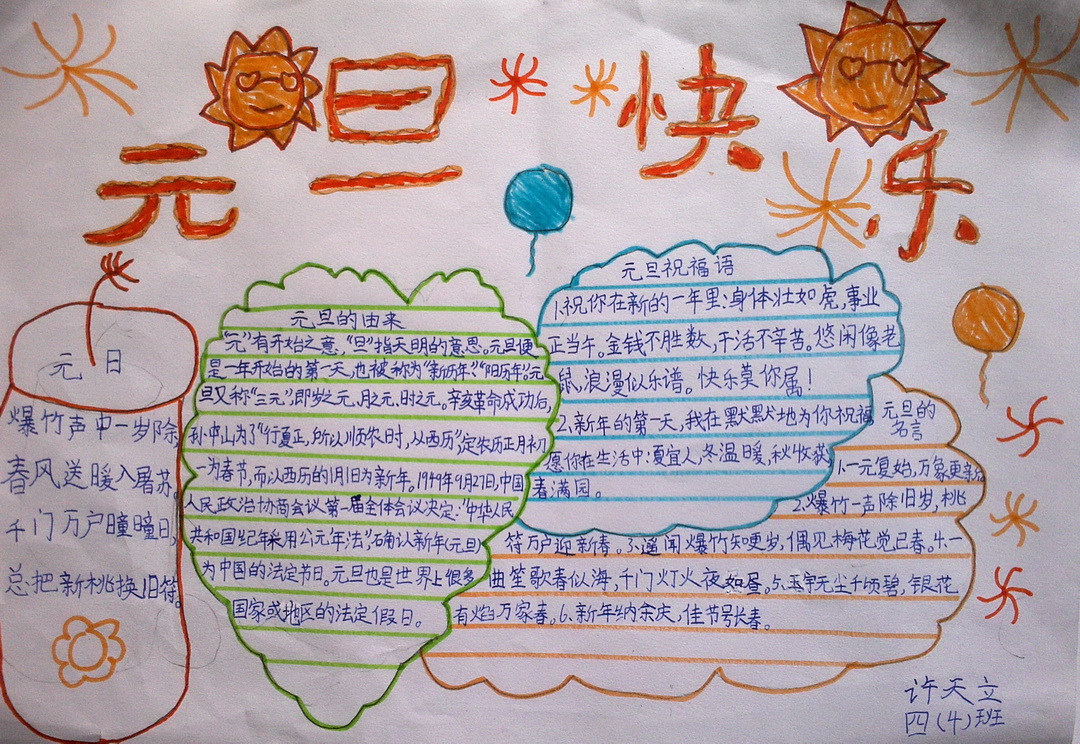 元旦快乐
元日
爆竹声中一岁除
春风送暖入屠苏。
千门万户曈曈日,
总把新桃换旧符。
元旦的由来
“元”有开始之意,“旦”指天明的意思。元旦便
是一年开始的第一天,也被称为“新历年”“阳历年”。元
旦又称“三元”即岁之元、月之元、时之元。辛亥革命成功后,
孙中山为了“行夏正,所以顺农时,从西历”,定农历正月初
一为春节,而以西历的1月1日为新年。1949年9月27日,中国
人民政治协商会议第一届全体会议决定:“中华人民
共和国纪年采用公元年法”,确认新年(元旦)
为中国的法定节日。元旦也是世界上很多
国家或地区的法定假日。
元旦祝福语
1.祝你在新的一年里:身体壮如虎,事业
正当午。金钱不胜数,干活不辛苦。悠闲像老
鼠,浪漫似乐谱。快乐莫你属!
2.新年的第一天,我在默默地为你祝福
愿你在生活中:夏宜人,冬温暖,秋收获
春满园。
元旦的
名言
1.一元复始,万象更新。
2.爆竹一声除旧岁,桃
符万户迎新春。3.遥闻爆竹知更岁,偶见梅花觉已春。4.一
曲笙歌春似海,千门灯火夜如昼。5.玉宇无尘千顷碧,银花
有焰万家春。6.新年纳余庆,佳节号长春。
许天立
四(4)班